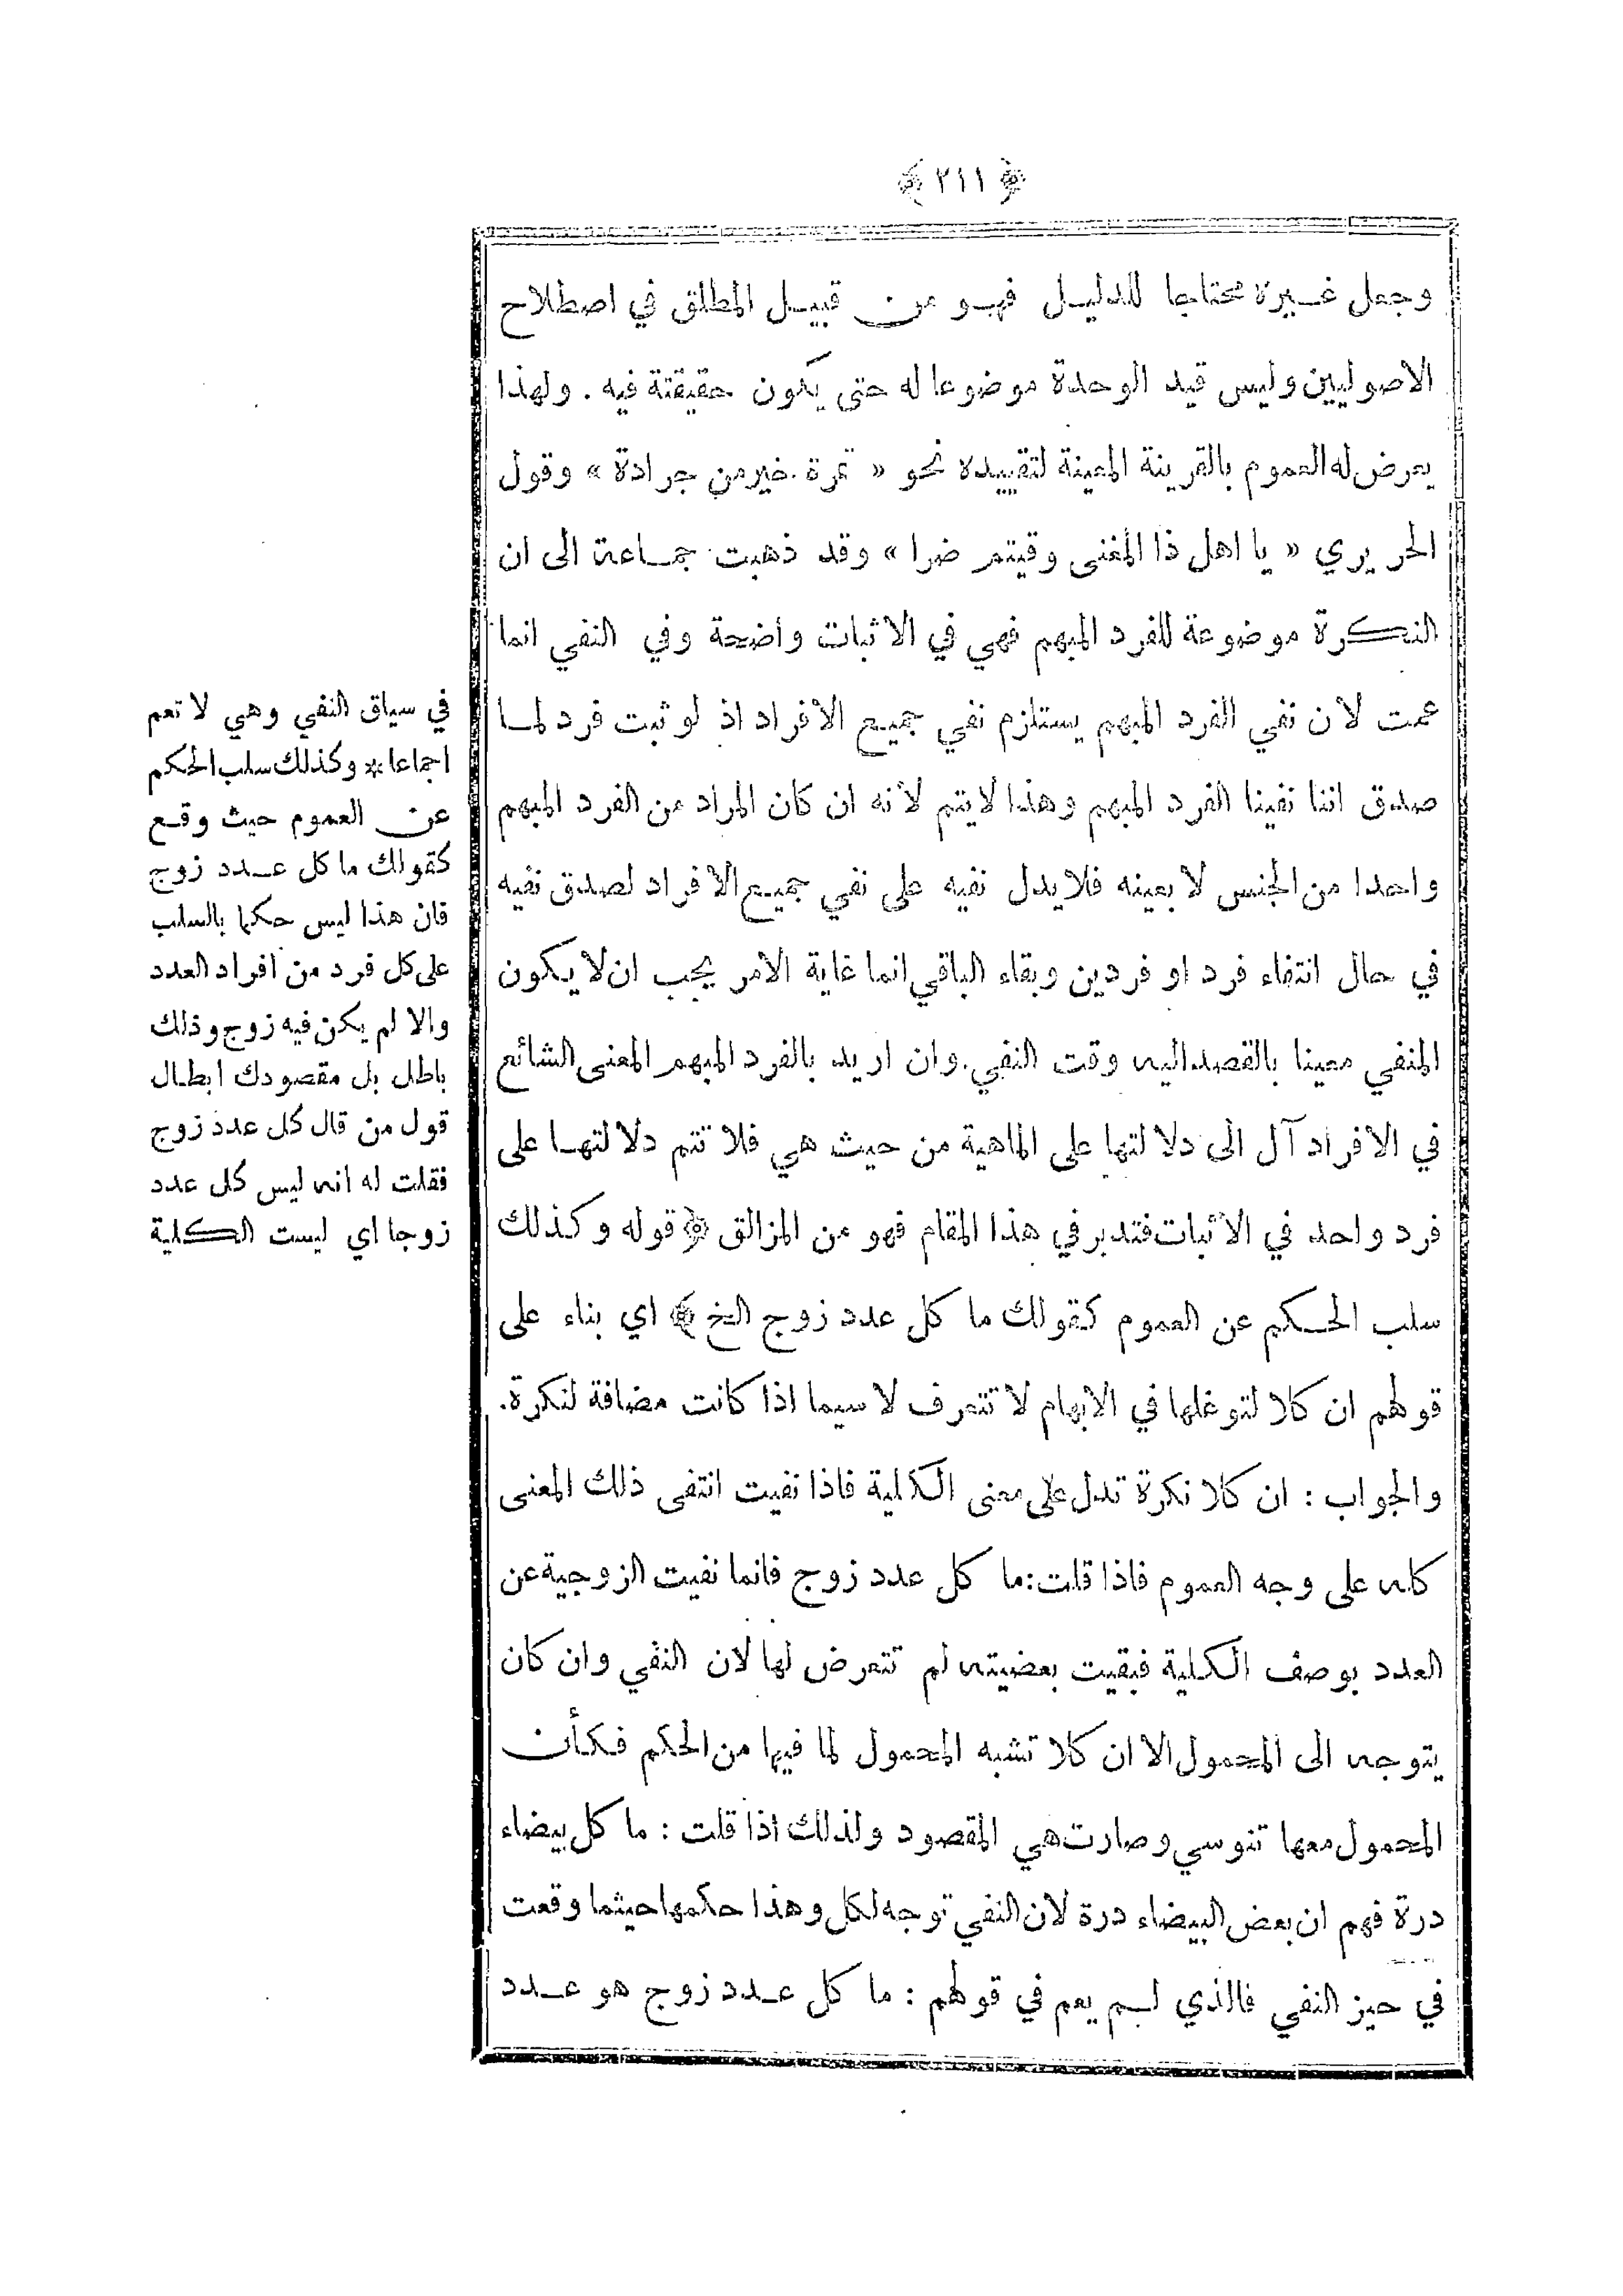 ﴿ ٢١١ ﴾
وجعل غيره محتاجا للدليل فهو من قبيل المطلق في اصطلاح
الاصوليين وليس قيد الوحدة موضوعا له حتى يكون حقيقتة فيه . ولهذا
يعرض له العموم بالقرينة المعينة لتقييده نحو « تمرة خير من جرادة » وقول
الحريري « يا اهل ذا المغنى وقيتم ضرا » وقد ذهبت جماعة الى ان
النكرة موضوعة للفرد المبهم فهي في الاثبات واضحة وفي النفي انما
عمت لان نفي الفرد المبهم يستلزم نفي جميع الافراد اذ لو ثبت فرد لما
صدق اننا نفينا الفرد المبهم وهذا لايتم لأنه ان كان المراد من الفرد المبهم
واحدا من الجنس لا بعينه فلا يدل نفيه على نفي جميع الافراد لصدق نفيه
في حال انتفاء فرد او فردين وبقاء الباقي انما غاية الامر يجب ان لا يكون
المنفي معينا بالقصد اليه وقت النفي . وان اريد بالفرد المبهم المعنى الشائع
في الافراد آل الى دلالتها على الماهية من حيث هي فلا تتم دلالتها على
فرد واحد في الاثبات فتدبر في هذا المقام فهو من المزالق ﴿ قوله وكذلك
سلب الحكم عن العموم كقولك ما كل عدد زوج الخ ﴾ اي بناء على
قولهم ان كلا لتوغلها في الابهام لا تتعرف لا سيما اذا كانت مضافة لنكرة .
والجواب : ان كلا نكرة تدل على معنى الكلية فاذا نفيت انتفى ذلك المعنى
كله على وجه العموم فاذا قلت : ما كل عدد زوج فانما نفيت الزوجية عن
العدد بوصف الكلية فبقيت بعضيته لم تتعرض لها لان النفي وان كان
يتوجه الى المحمول الا ان كلا تشبه المحمول لما فيها من الحكم فكأن
المحمول معها تنوسي وصارت هي المقصود ولذلك اذا قلت : ما كل بيضاء
درة فهم ان بعض البيضاء درة لان النفي توجه لكل وهذا حكمها حيثما وقعت
في حيز النفي فالذي لم يعم في قولهم : ما كل عدد زوج هو عدد
في سياق النفي وهي لا تعم
اجماعا * وكذلك سلب الحكم
عن العموم حيث وقع
كقولك ما كل عدد زوج
فان هذا ليس حكما بالسلب
على كل فرد من افراد العدد
والا لم يكن فيه زوج وذلك
باطل بل مقصودك ابطال
قول من قال كل عدد زوج
فقلت له انه ليس كل عدد
زوجا اي ليست الكلية